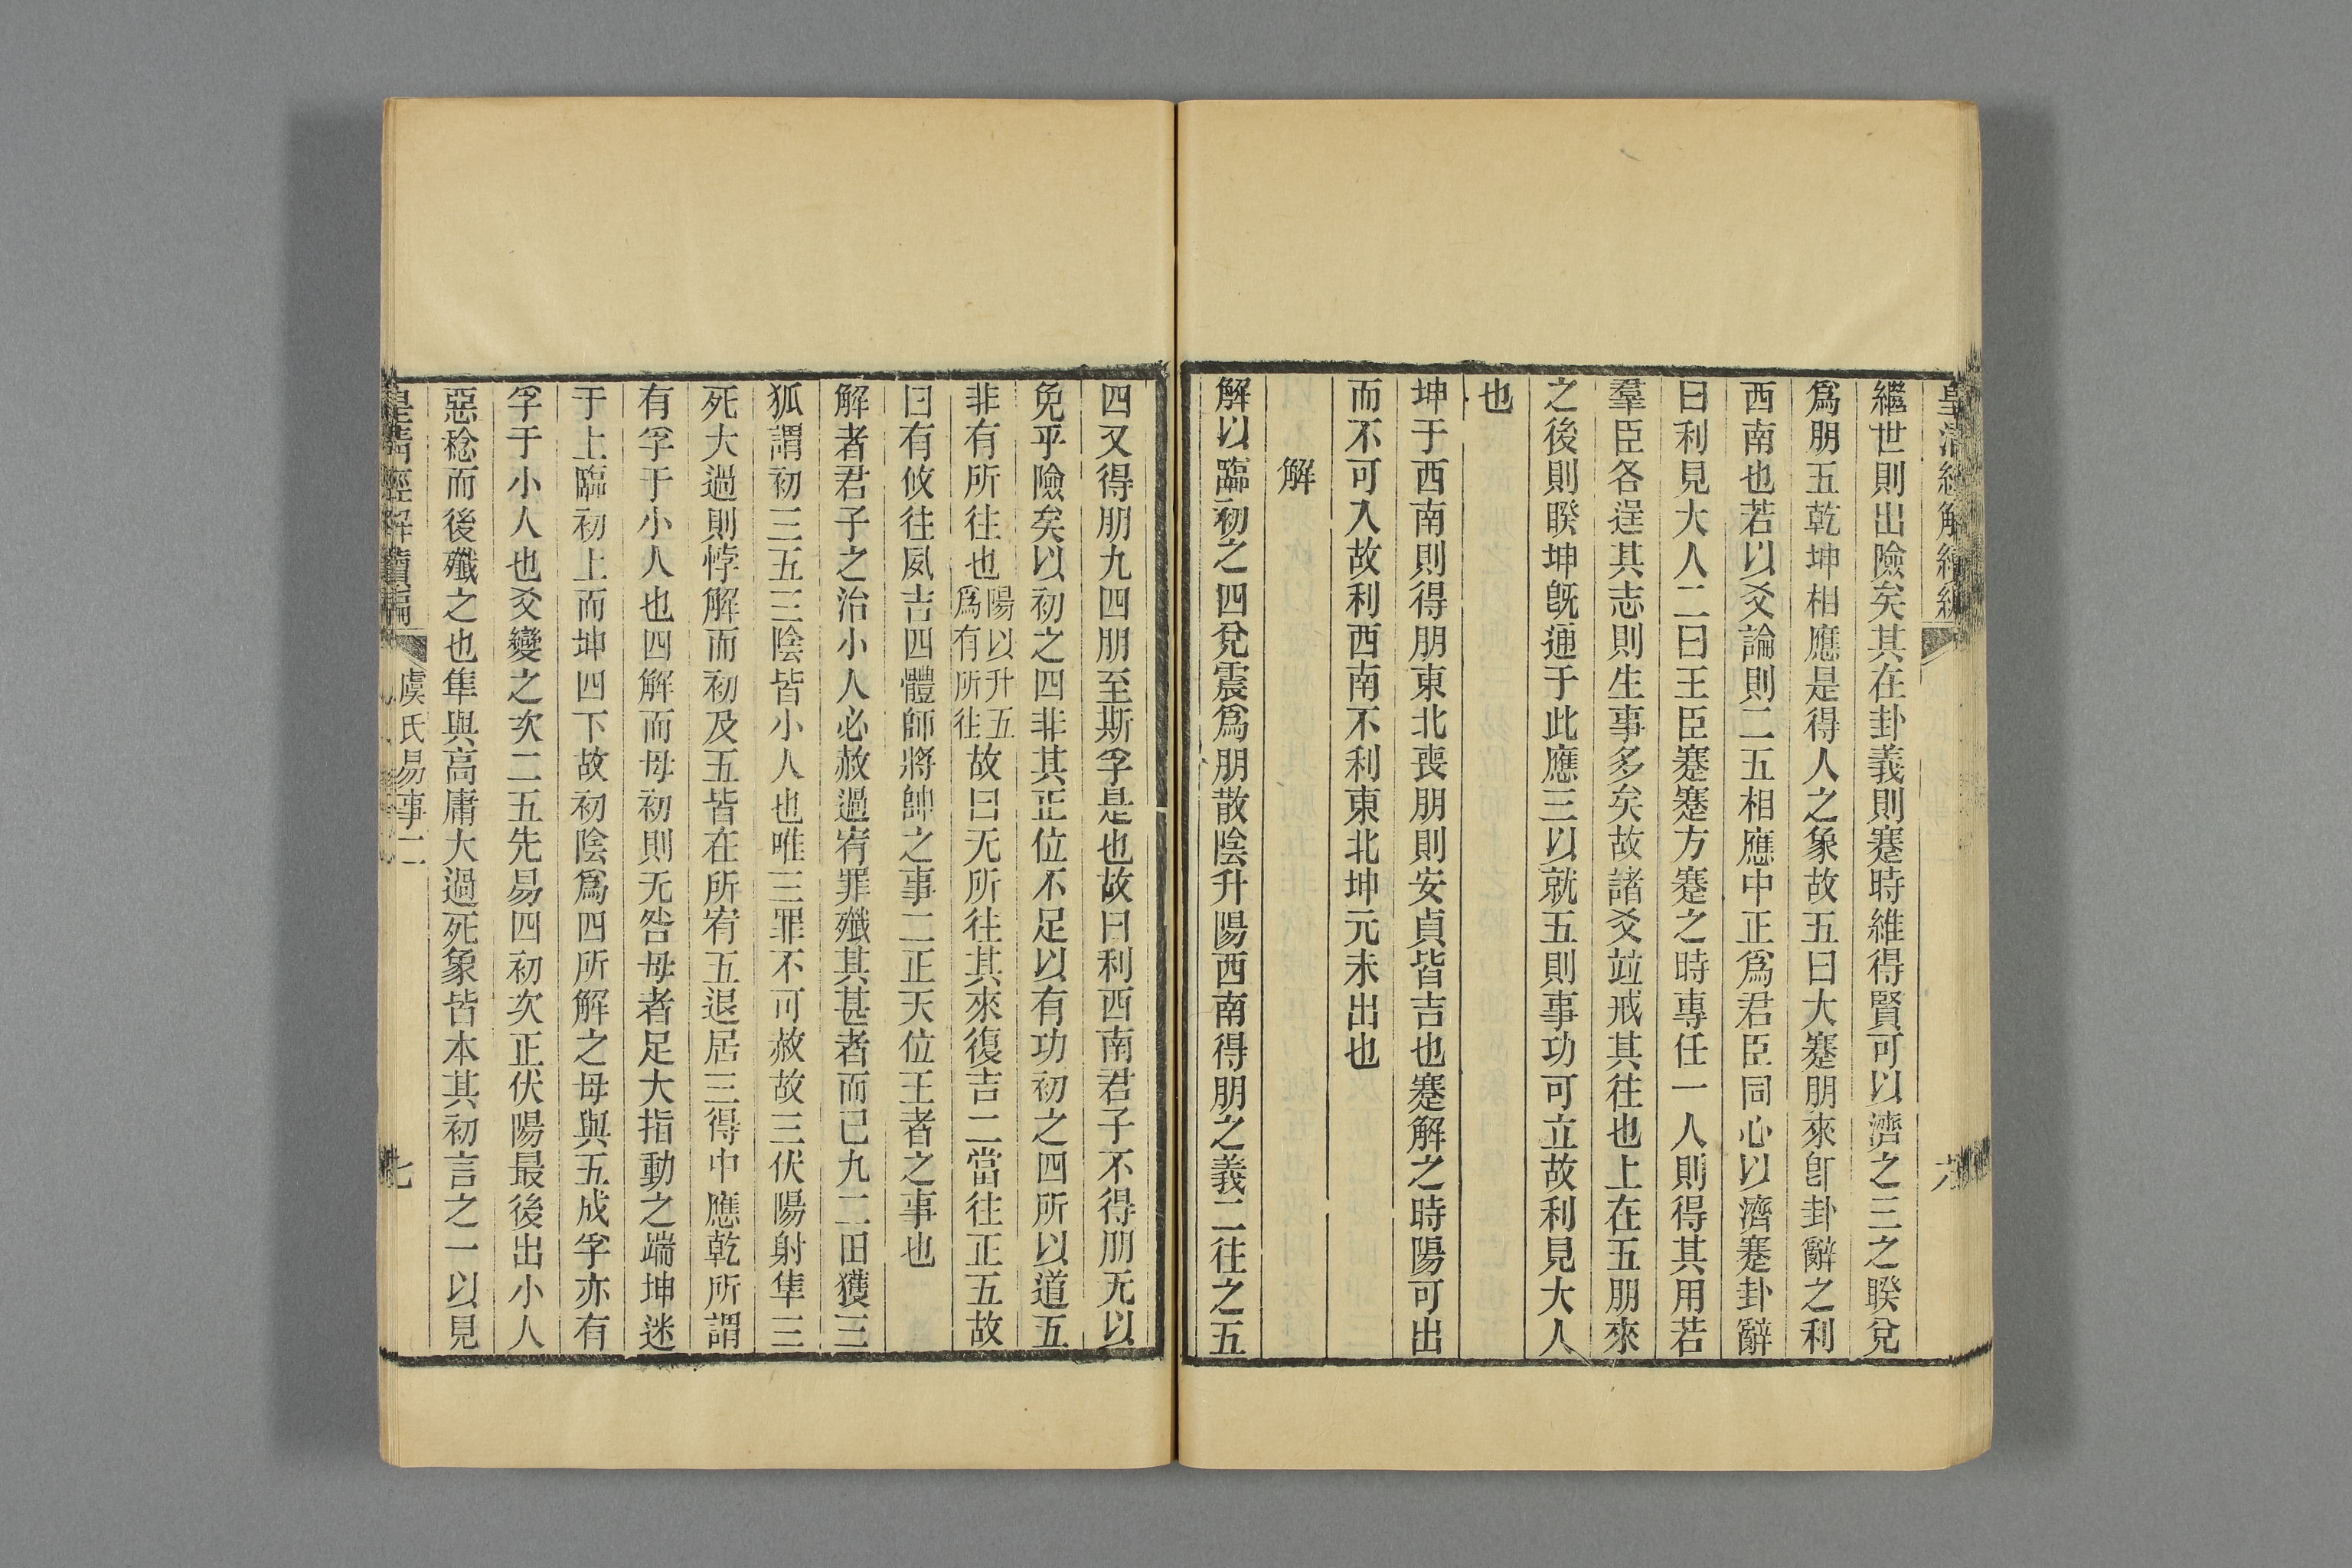 繼世則出險矣其在卦義則蹇時維得賢可以濟之三之睽兌
爲朋五乾坤相應是得人之象故五曰大蹇朋來卽卦辭之利
西南也若以爻論則二五相應中正爲君臣同心以濟蹇卦辭
曰利見大人二曰王臣蹇蹇方蹇之時專任一人則得其用若
羣臣各逞其志則生事多矣故諸爻竝戒其往也上在五朋來
之後則睽坤旣通于此應三以就五則事功可立故利見大人
也
坤于西南則得朋東北喪朋則安貞皆吉也蹇解之時陽可出
而不可入故利西南不利東北坤元未出也
解
解以臨初之四兌震爲朋散陰升陽西南得朋之義二往之五
四又得朋九四朋至斯孚是也故曰利西南君子不得朋无以
免乎險矣以初之四非其正位不足以有功初之四所以道五
非有所往也陽以升五爲有所往故曰无所往其來復吉二當往正五故
曰有攸往夙吉四體師將帥之事二正天位王者之事也
解者君子之治小人必赦過宥罪殲其甚者而已九二田獲三
狐謂初三五三陰皆小人也唯三罪不可赦故三伏陽射隼三
死大過則悖解而初及五皆在所宥五退居三得中應乾所謂
有孚于小人也四解而母初則无咎母者足大指動之端坤迷
于上臨初上而坤四下故初陰爲四所解之母與五成孚亦有
孚于小人也爻變之次二五先易四初次正伏陽最後出小人
惡稔而後殲之也隼與高庸大過死象皆本其初言之一以見
皇淸經解續編 虞氏易事二 七